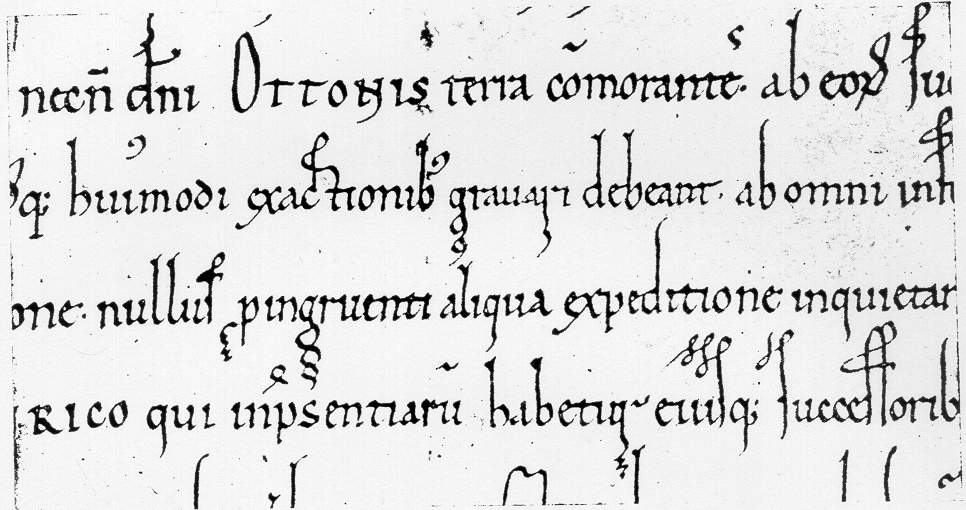 necn̄ dn̄i OTTONIS terra cōmorante. ab eoꝝ suc
q; hui᾿modi exactionib᾿ grauari debeant. ab omni inf
one. nullus pingruenti aliqua expeditione inquietar
RICO qui inpsentiarū habetur eiusq; successorib